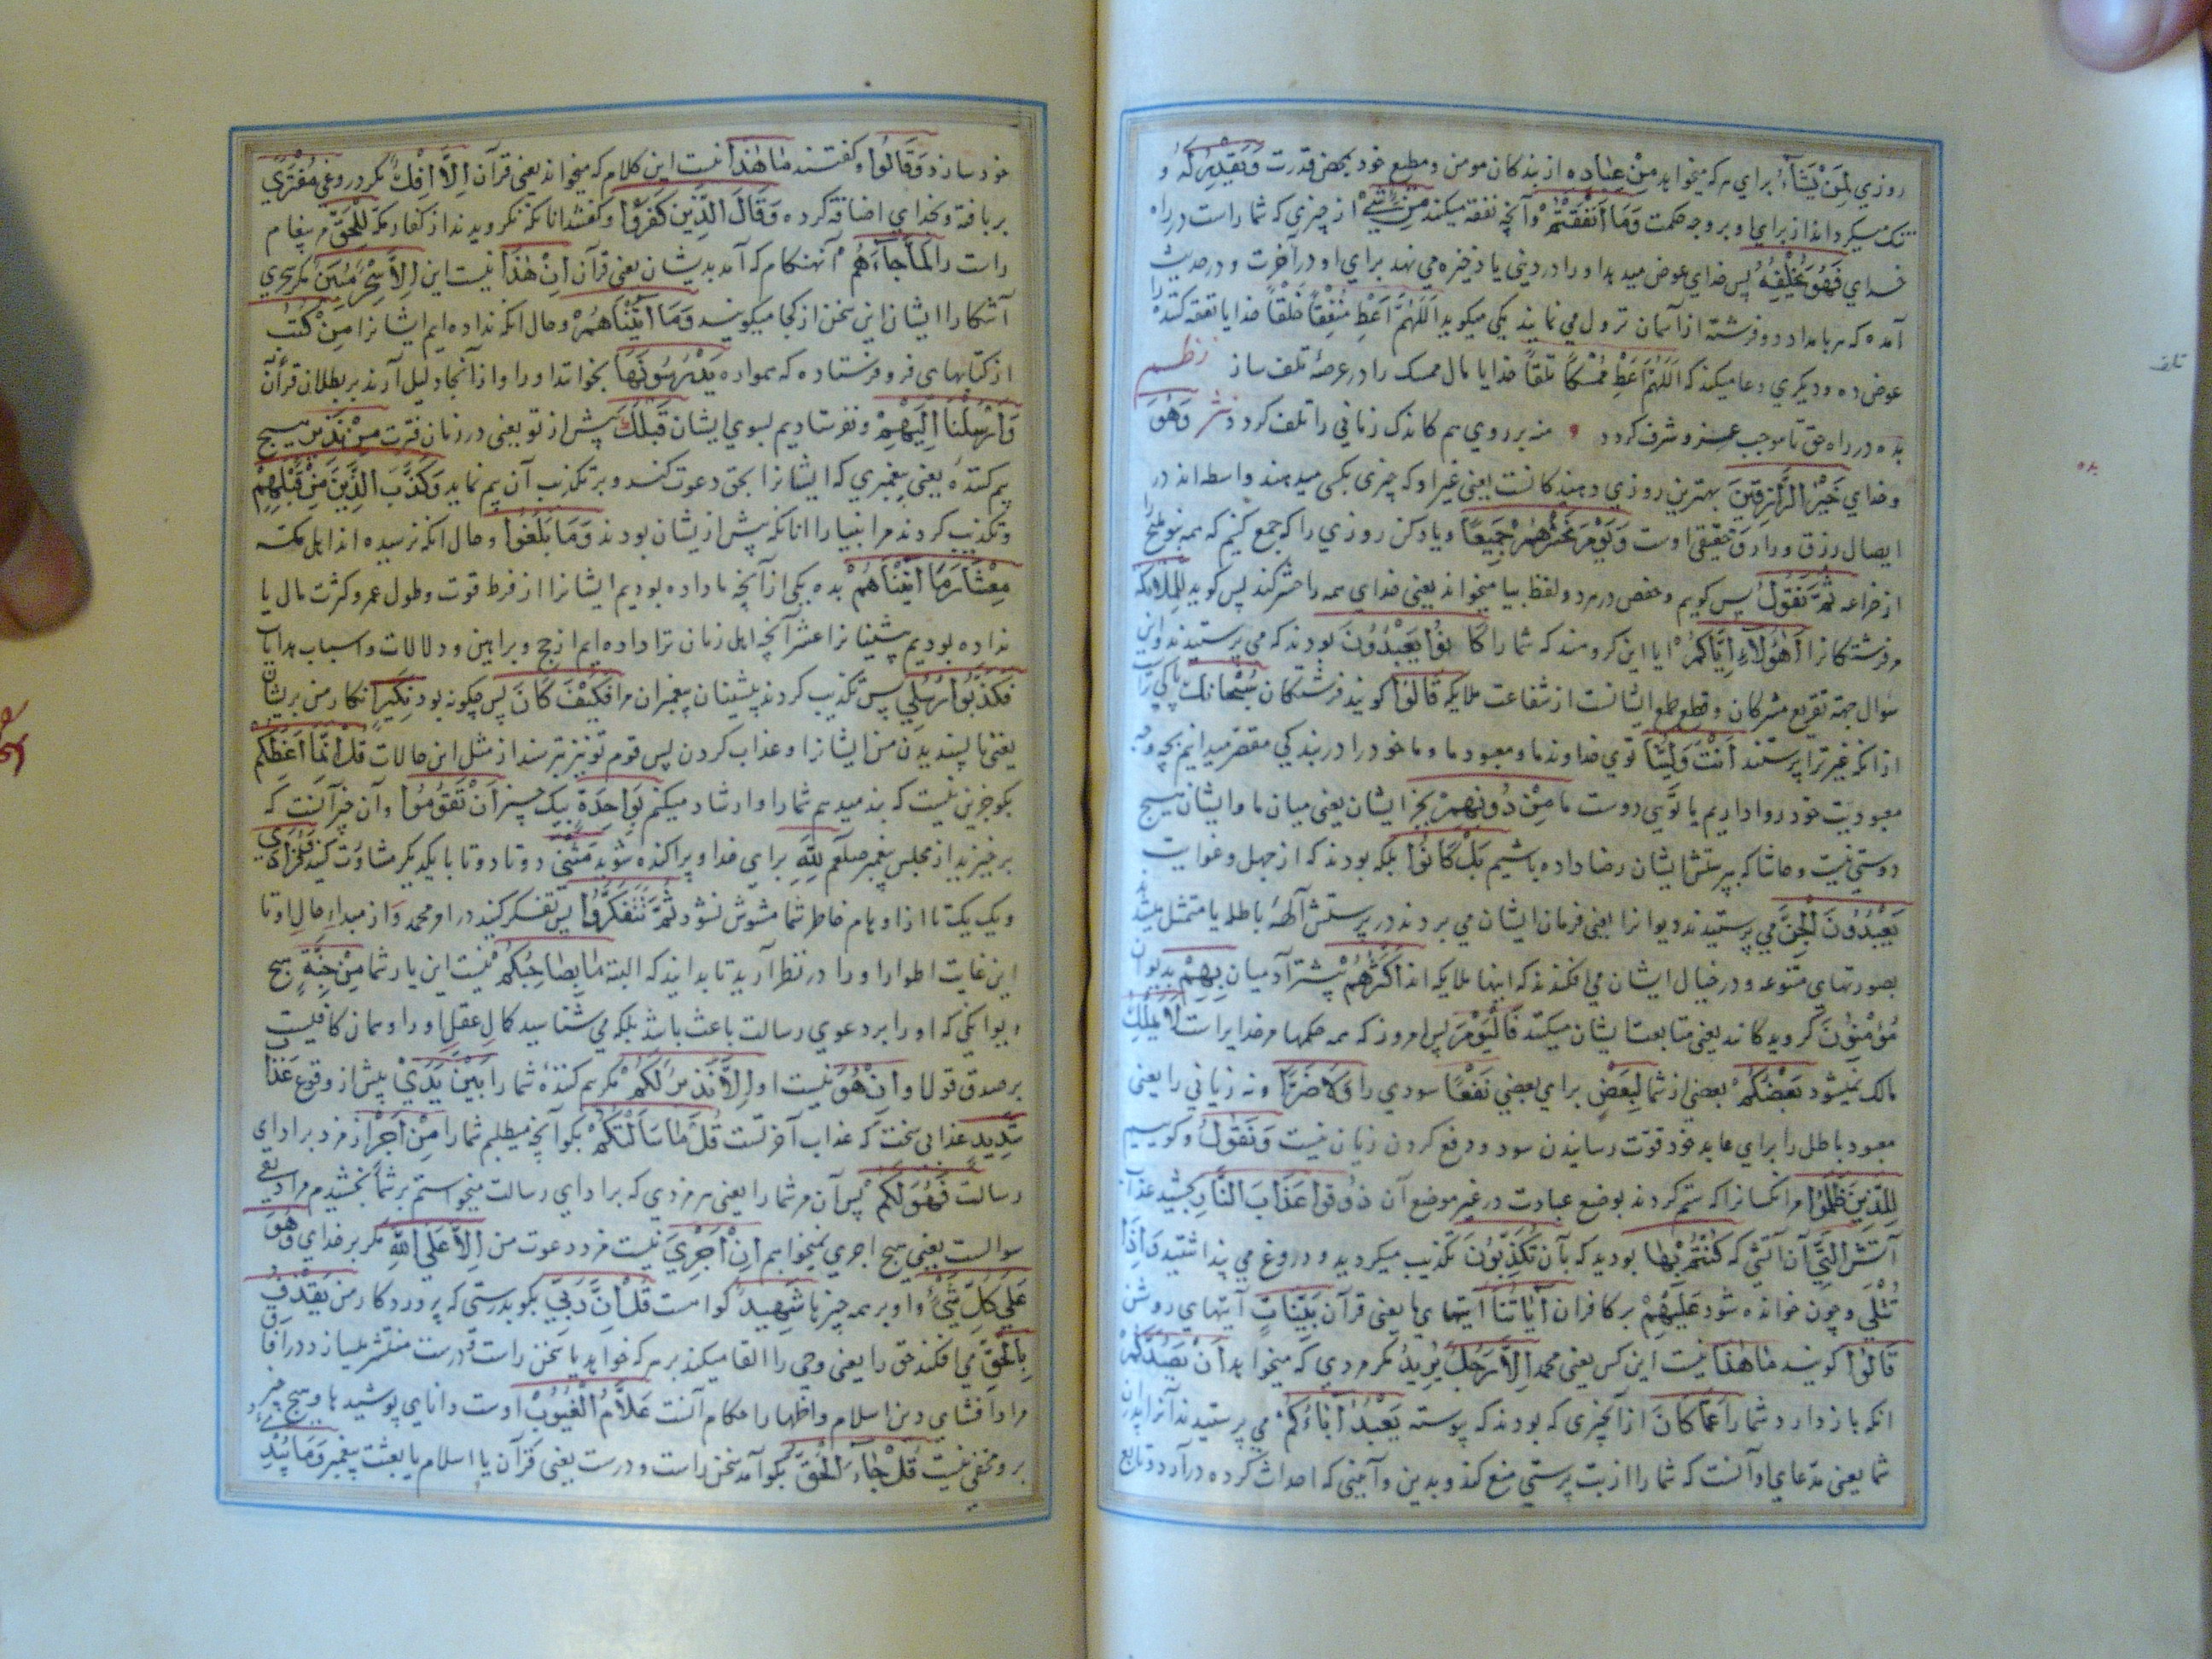 روزي لِمَنْ يَشَآءُ براي هر كه ميخواهد مِنْ عِبَادِه از بندكان مومن و مطيع خود بمحض قدرت وَيَقْدِرُ لَهُ و
تنك ميكرداند از براي او بر وجه حكمت وَمَا اَنْفَقْتُمْ و آنچه نفقه ميكنند مِنْ شَيْءٍ از چيزي كه شما راست در راه
خداي فَهُوَ يُخْلِفُهُ پس خداي عوض ميدهد او را در دنيي يا ذخيره مي نهد براي او در آخرت و در حديث
آمده كه هر بامداد دو فرشته از آسمان نزول مي نمايند يكي ميكويد اَللّهُمَّ اَعْطِ مُنْفِقًا خَلَفًا خدايا نفقه كننده را
عوض ده و ديكري دعا ميكند كه اَللّهُمَّ اَعْطِ مُمْسِكًا تَلَفًا خدايا مال ممسك را در عرصهٔ تلف ساز نظم
بده در راه حق تا موجب عز و شرف كردد منه بر روي هم كاندك زماني را تلف كردد نثر وَهُوَ
و خداي خَيْرُ الرَّازِقِينَ بهترين روزي دهندكانست يعني غير او كه چيزي بكسي ميدهند واسطه اند در
ايصال رزق و رازق حقيقي اوست وَيَوْمَ نَحْشُرُهُمْ جَمِيعًا و ياد كن روزي را كه جمع كنيم كه همه بنو مليح را
از خزاعه ثُمَّ نَقُولُ پس كويم و حفص در هر دو لفظ بيا ميخواند يعني خداي همه را حشر كند پس كويد لِلْمَلَائِكَةِ
مر فرشتكانرا اَهٰؤُلَاءِ اِيَّاكُمْ ايا اين كروهند كه شما را كَانُوا يَعْبُدُونَ بودند كه مي پرستيدند و اين
سؤال جهة تقريع مشركان و قطع طمع ايشانست از شفاعت ملايكه قَالُوا كويند فرشتكان سُبْحَانَكَ پاكي تراست
از انكه غير ترا پرستند اَنْتَ وَلِيُّنَا توي خداوند ما و معبود ما و ما خود را در بندكي مقصر ميدانيم بچه وجه
معبوديت خود روا داريم يا تويي دوست ما مِنْ دُونِهِمْ بجز ايشان يعني ميان ما و ايشان هيچ
دوستي نيست و حاشا كه بپرستش ايشان رضا داده باشيم بَلْ كَانُوا بلكه بودند كه از جهل و غوايت
يَعْبُدُونَ الْجِنَّ مي پرستيدند ديوانرا يعني فرمان ايشان مي بردند در پرستش آلههٔ باطله يا متمثل ميشدند
بصورتهاي متنوعه و در خيال ايشان مي افكندند كه اينها ملايكه اند اَكْثَرُهُمْ بيشتر آدميان بِهِمْ بديوان
مُؤْمِنُونَ كرويدكانند يعني متابعت ايشان ميكنند فَالْيَوْمَ پس امروز كه همه حكمها مر خدايراست لَا يَمْلِكُ
مالك نميشود بَعْضُكُمْ بعضي از شما لِبَعْضٍ براي بعضي نَفْعًا سودي را وَلَا ضَرًّا و نه زياني را يعني
معبود باطل را براي عابد خود قوت رسانيدن سود و دفع كردن زيان نيست وَنَقُولُ و كوييم
لِلَّذِينَ ظَلَمُوا مر انكسانرا كه ستم كردند بوضع عبادت در غير موضع آن ذُوقُوا عَذَابَ النَّارِ بچشيد عذاب
آتش اَلَّتِي آن آتشي كه كُنْتُمْ بِهَا بوديد كه بآن تُكَذِّبُونَ تكذيب ميكرديد و دروغ مي پنداشتيد وَاِذَا
تُتْلٰي و چون خوانده شود عَلَيْهِمْ بر كافران اٰيَاتُنَا ايتهاي ما يعني قرآن بَيِّنَاتٍ آيتهاي روشن
قَالُوا كويند مَا هٰذَا نيست اين كس يعني محمد اِلَّا رَجُلٌ يُرِيدُ مكر مردي كه ميخواهد اَنْ يَصُدَّكُمْ
انكه باز دارد شما را عَمَّا كَانَ از آنچيزي كه بودند كه پيوسته يَعْبُدُ اٰبَاؤُكُمْ مي پرستيدند آنرا پدران
شما يعني مدعاي او آنست كه شما را از بت پرستي منع كند و بدين و آييني كه احداث كرده در آرد و تابع
تلف
بده
خود سازد وَقَالُوا و كفتند مَا هٰذَا نيست اين كلام كه ميخواند يعني قرآن اِلَّا اِفْكٌ مكر دروغي مُفْتَرًي
بر بافته و بخداي اضافه كرده وَقَالَ الَّذِينَ كَفَرُوا و كفتند انانكه نكرويدند از كفار مكه لِلْحَقِّ مر پيغام
راست را لَمَّا جَآءَهُمْ آنهنكام كه آمد بديشان يعني قرآن اِنْ هٰذَا نيست اين اِلَّا سِحْرٌ مُبِينٌ مكر سحري
آشكارا ايشان اين سخن از كجا ميكويند وَمَا اٰتَيْنَاهُمْ و حال انكه نداده ايم ايشانرا مِنْ كُتُبٍ
از كتابهاي فرو فرستاده كه همواره يَدْرُسُونَهَا بخوانند او را و از آنجا دليل آرند بر بطلان قرآن
وَمَا اَرْسَلْنَا اِلَيْهِمْ و نفرستاديم بسوي ايشان قَبْلَكَ پيش از تو يعني در زمان فترت مِنْ نَذِيرٍ هيچ
بيم كننده يعني پيغمبري كه ايشانرا بحق دعوت كند و بر تكذيب آن بيم نمايد وَكَذَّبَ الَّذِينَ مِنْ قَبْلِهِمْ
و تكذيب كردند مر انبيا را انانكه پيش از يشان بودند وَمَا بَلَغُوا و حال انكه نرسيده اند اهل مكه
مِعْشَارَ مَا اٰتَيْنَاهُمْ بده يكي از آنچه ما داده بوديم ايشانرا از فرط قوت و طول عمر و كثرت مال يا
نداده بوديم پيشينانرا عشر آنچه اهل زمان ترا داده ايم از حجج و براهين و دلالات و اسباب هدايات
فَكَذَّبُوا رُسُلِي پس تكذيب كردند پيشينان پيغمبران مرا فَكَيْفَ كَانَ پس چكونه بود نَكِيرِ انكار من بريشان
يعني ناپسنديدن من ايشانرا و عذاب كردن پس قوم تو نيز بترسند از مثل اين حالات قُلْ اِنَّمَا اَعِظُكُمْ
بكو جز اين نيست كه پند ميدهم شما را و ارشاد ميكنم بِوَاحِدَةٍ بيك چيز اَنْ تَقُومُوا و آن چيز آنست كه
بر خيزيد از مجلس پيغمبر صلعم لِلّٰهِ براي خدا و پراكنده شويد مَثْنٰي دو تا دو تا با يكديكر مشاورت كنيد وَفُرَادٰي
و يك يك تا از اوهام خاطر شما مشوش نشود ثُمَّ تَتَفَكَّرُوا پس تفكر كنيد در امر محمد و از مبداء حال او تا
اين غايت اطوار او را در نظر آريد تا بدانيد كه البته مَا بِصَاحِبِكُمْ نيست اين يار شما مِنْ جِنَّةٍ هيچ
ديوانكي كه او را بر دعوي رسالت باعث باشد بلكه مي شناسيد كمال عقل او را و همان كافيست
بر صدق قول او اِنْ هُوَ نيست او اِلَّا نَذِيرٌ لَكُمْ مكر بيم كننده شما را بَيْنَ يَدَيْ پيش از وقوع عَذَابٍ
شَدِيدٍ عذابي سخت كه عذاب آخرتست قُلْ مَا سَاَلْتُكُمْ بكو آنچه ميطلبم شما را مِنْ اَجْرٍ از مزد بر اداي
رسالت فَهُوَ لَكُمْ پس آن مر شما را يعني هر مزدي كه بر اداي رسالت ميخواستم بر شما بخشيدم مراد نفي
سوالست يعني هيچ اجري نميخواهم اِنْ اَجْرِيَ نيست مزد دعوت من اِلَّا عَلَي اللّٰهِ مكر بر خداي وَهُوَ
عَلٰي كُلِّ شَيْءٍ و او بر همه چيزها شَهِيدٌ كواهست قُلْ اِنَّ رَبِّي بكو بدرستي كه پروردكار من يَقْذِفُ
بِالْحَقِّ مي افكند حق را يعني وحي را القا ميكند بر هر كه خواهد يا سخن راست و درست منتشر ميسازد در آفاق
مراد افشاي دين اسلام و اظهار احكام آنست عَلَّامُ الْغُيُوبِ اوست داناي پوشيدها و هيچ چيز
برو مخفي نيست قُلْ جَآءَ الْحَقُّ بكو آمد سخن راست و درست يعني قرآن يا اسلام يا بعثت پيغمبر وَمَا يُبْدِئُ